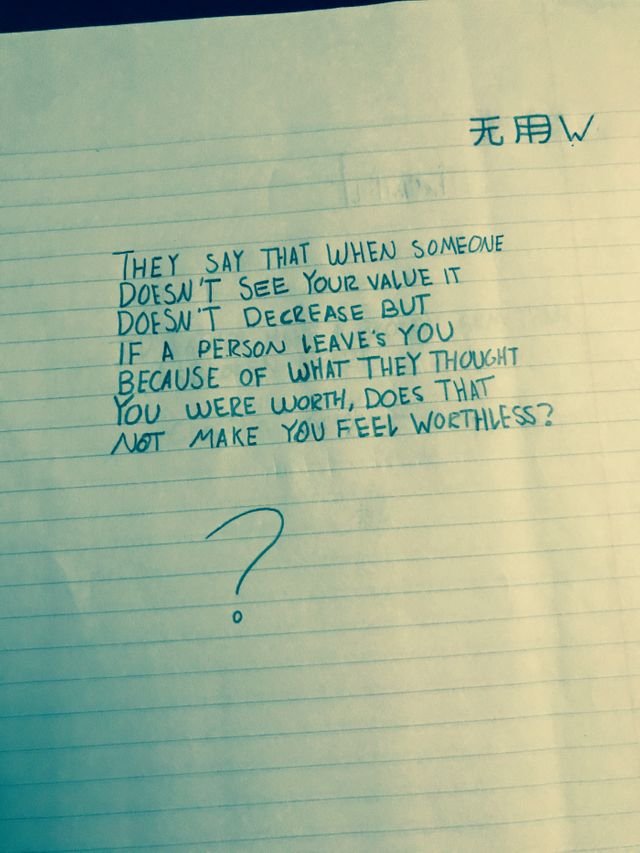 无用W
THEY SAY THAT WHEN SOMEONE
DOESN'T SEE YOUR VALUE IT
DOESN'T DECREASE BUT
IF A PERSON LEAVE'S YOU
BECAUSE OF WHAT THEY THOUGHT
YOU WERE WORTH, DOES THAT
NOT MAKE YOU FEEL WORTHLESS?
?